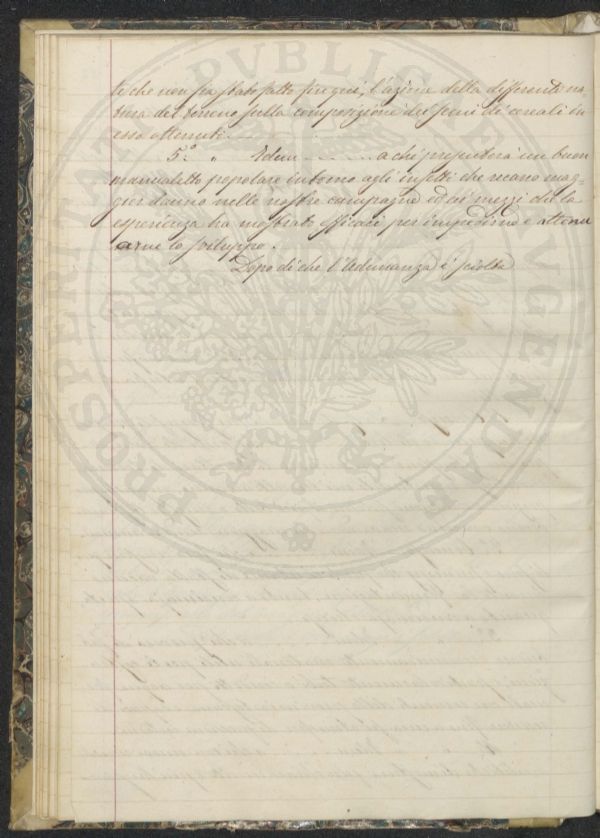 te che non sia stato fatto fin qui, l'azione della differente na-
tura del terreno sulla composizione dei semi di cereali in
esso ottenuti.
5.° " Idem ......... a chi presenterà un buon
manualetto popolare intorno agli insetti che recano mag-
gior danno nelle nostre campagne ed ai mezzi che la
esperienza ha mostrato efficaci per impedirne o attenu
arne lo sviluppo.
Dopo di che l'Adunanza è sciolta
PROSPERITATI PVBLICAE AVGENDAE